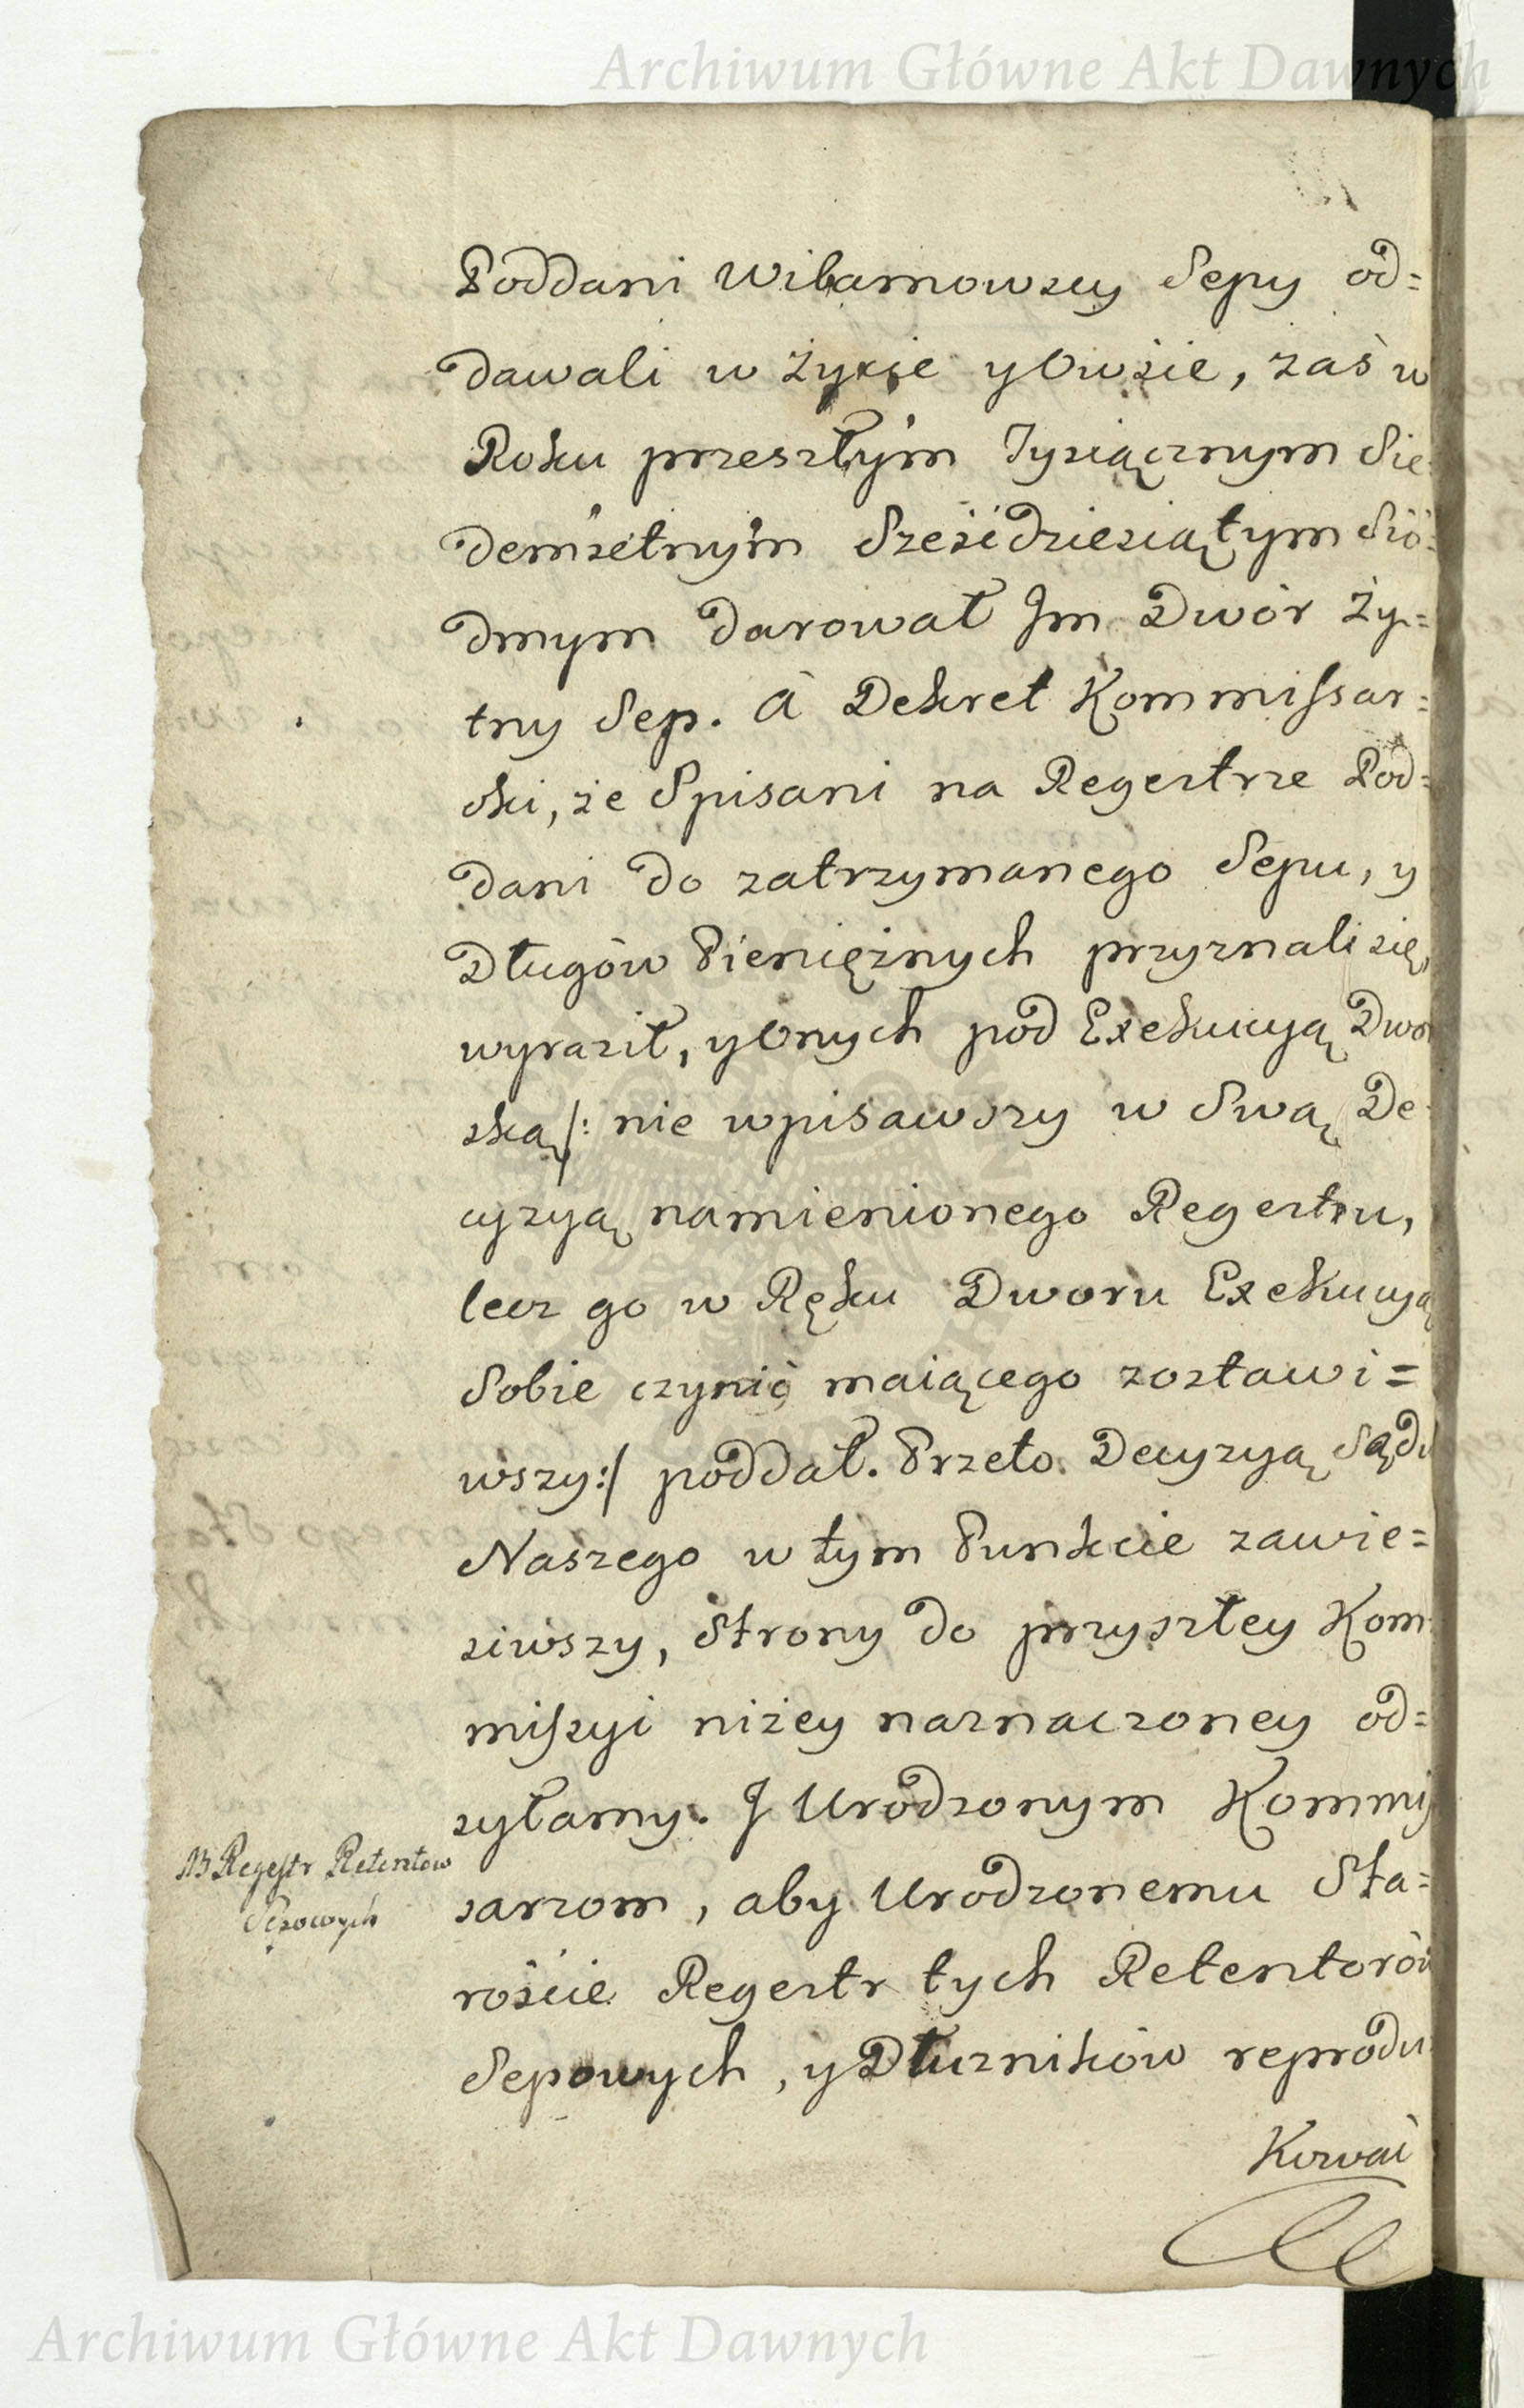 Archiwum Główne Akt Dawnych
Poddani Wilamowscy Sepy od=
dawali w życie y Owsie, zaś w
Roku przeszłym Tysiącznym Sie=
demsetnym Sześćdziesiątym Sió=
dmym darował Im Dwór Ży=
tny Sep. A Dekret Kommissar=
ski, że Spisani na Regestrze Pod=
dani do zatrzymanego Sepu, y
Długów Pieniężnych przyznali się,
wyraził, y Onych pod Exekucyą Dwor
ską /: nie wpisawszy w Swą De=
cyzyą namienionego Regestru,
lecz go w Ręku Dworu Exekucyą
Sobie czynić maiącego zostawi=
wszy :/ poddał. Przeto Decyzyą Sądu
Naszego w tym Punkcie zawie=
siwszy, Strony do przyszłey Kom=
missyi niżey naznaczoney od=
syłamy. I Urodzonym Kommis
sarzom, aby Urodzonemu Sta=
NB Regestr Retentow
Sepowych
rościе Regestr tych Retentorów
Sepowych, y Dłużników reprodu
Kować
Archiwum Główne Akt Dawnych